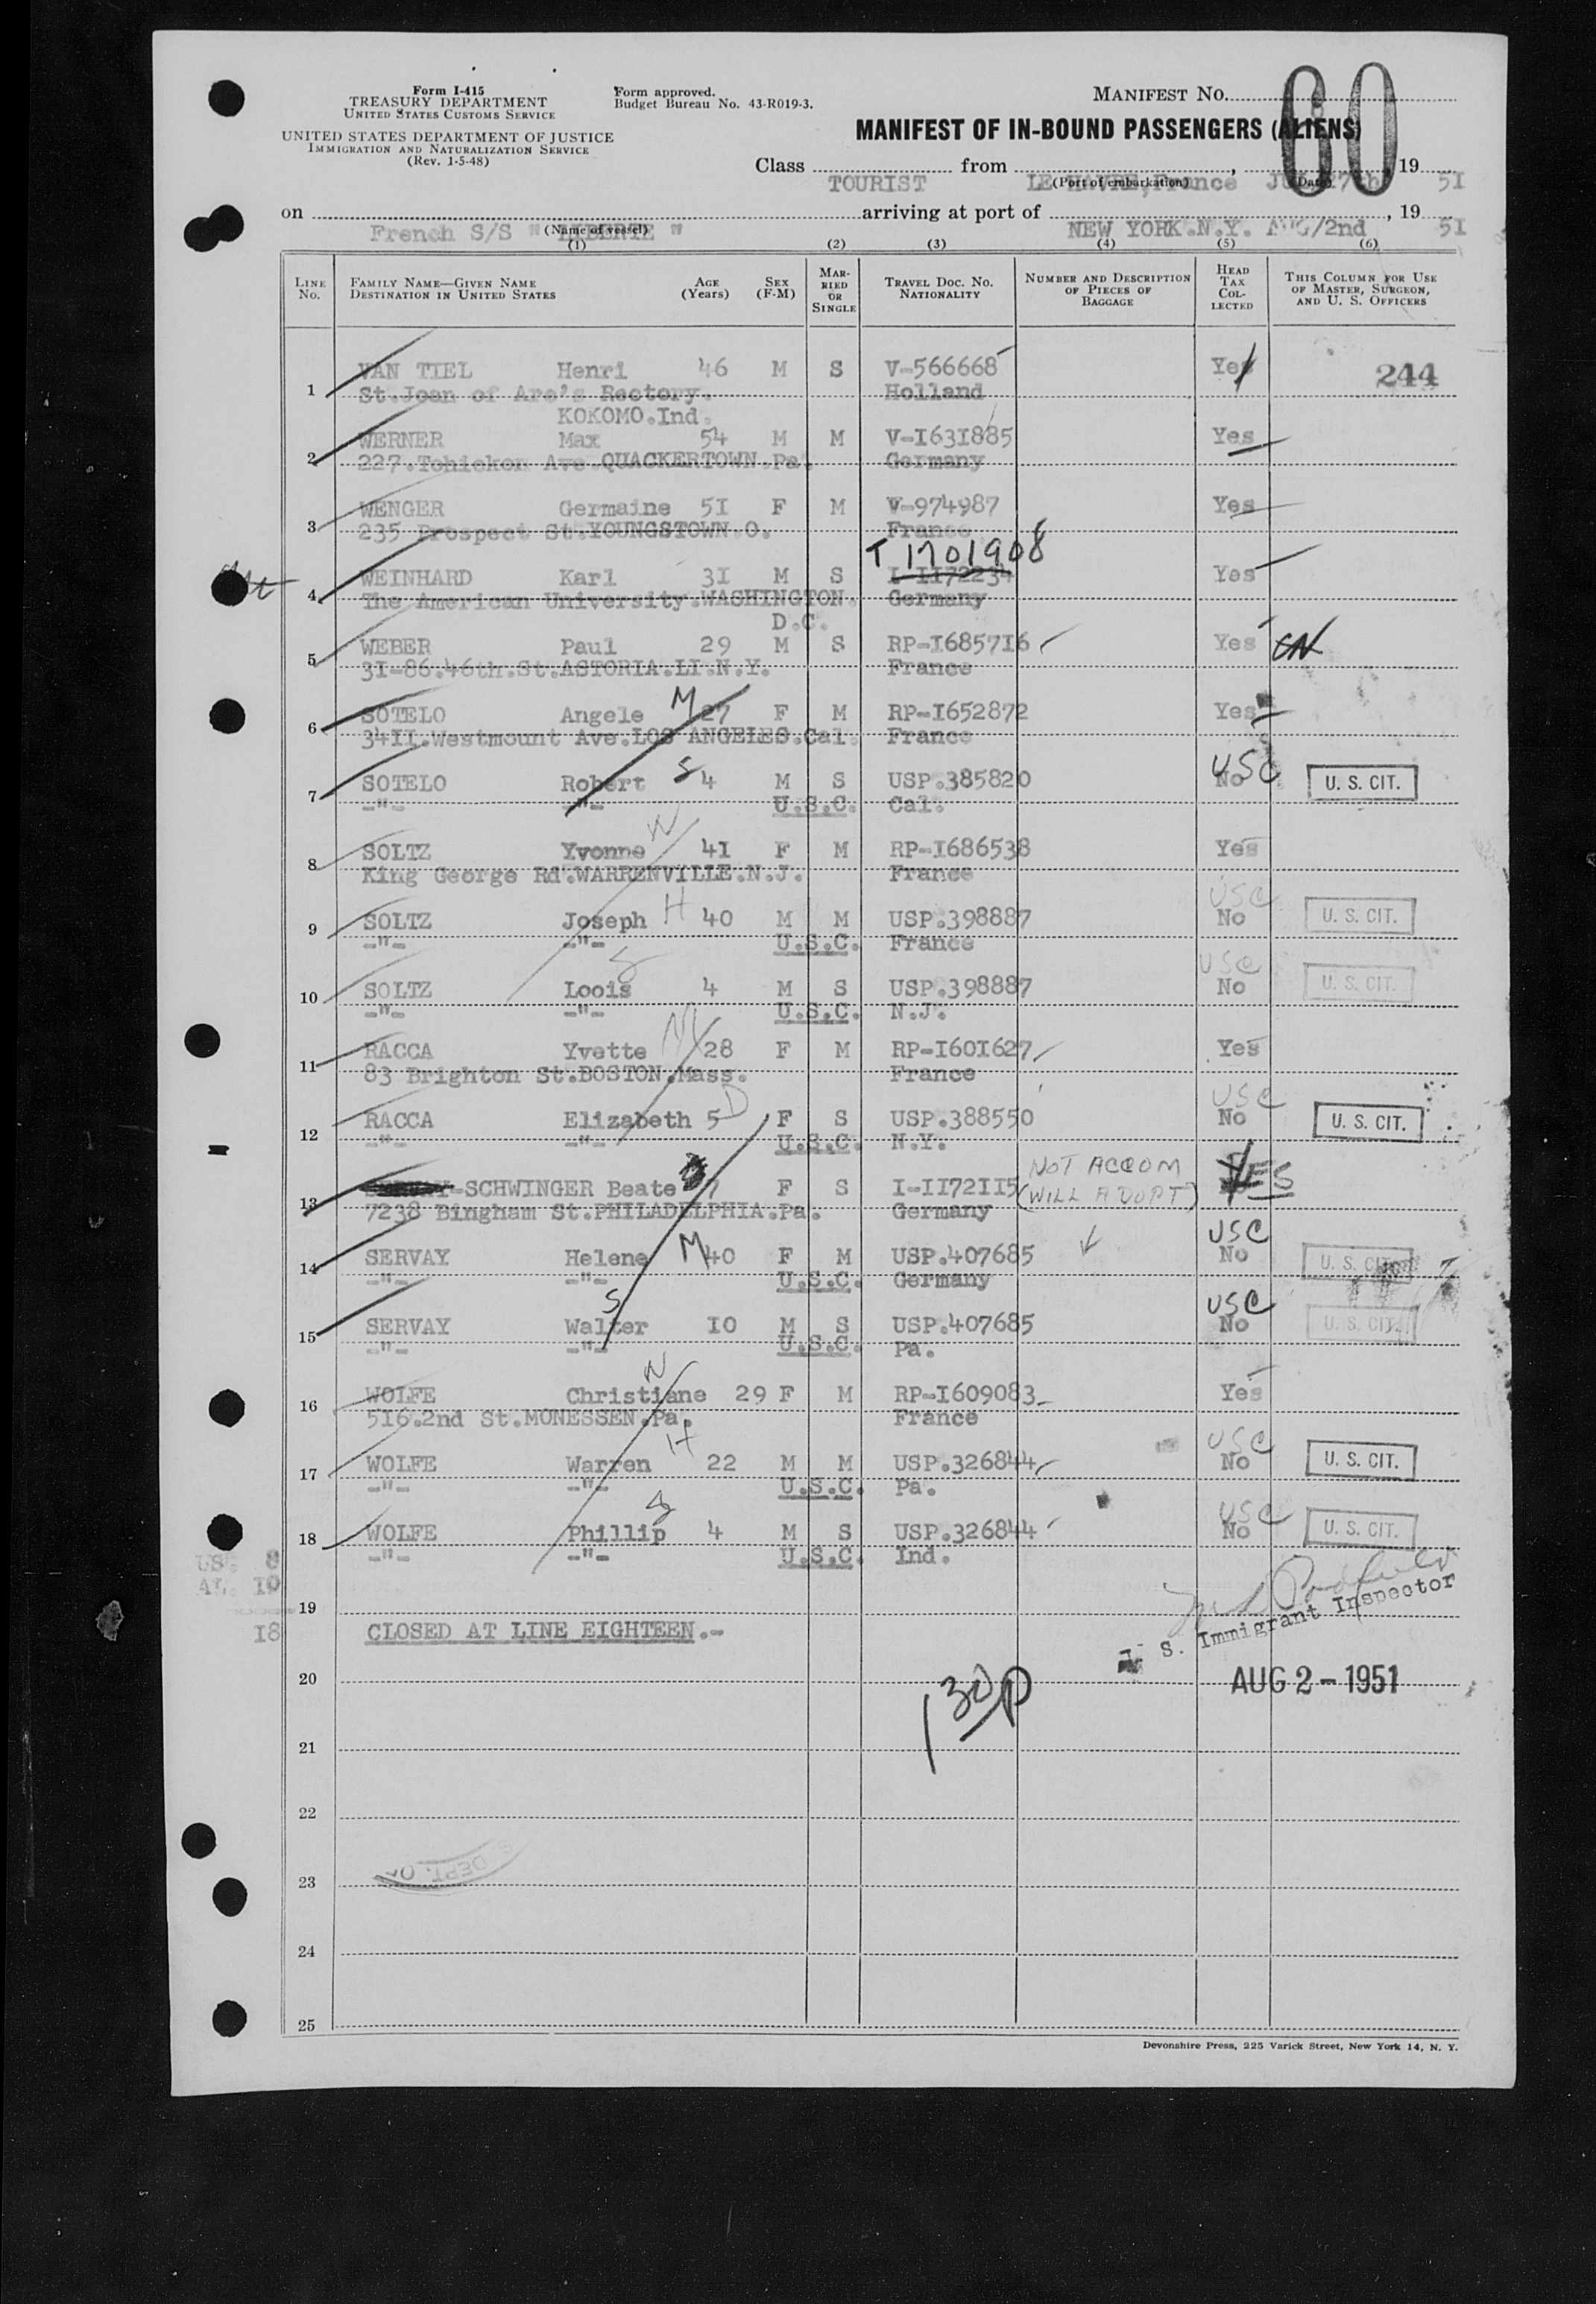 Form I-415
TREASURY DEPARTMENT
UNITED STATES CUSTOMS SERVICE
UNITED STATES DEPARTMENT OF JUSTICE
IMMIGRATION AND NATURALIZATION SERVICE
(Rev. 1-5-48)
Form approved.
Budget Bureau No. 43-R019-3.
MANIFEST NO.
60
MANIFEST OF IN-BOUND PASSENGERS (ALIENS)
Class TOURIST from LE HAVRE,France , 19 51
(Port of embarkation) (Date)
on French S/S " LIBERTE " arriving at port of NEW YORK.N.Y. AUG/2nd , 19 51
(Name of vessel)
(1) (2) (3) (4) (5) (6)
LINE NO. FAMILY NAME—GIVEN NAME DESTINATION IN UNITED STATES AGE (Years) SEX (F-M) MARRIED OR SINGLE TRAVEL DOC. NO. NATIONALITY NUMBER AND DESCRIPTION OF PIECES OF BAGGAGE HEAD TAX COLLECTED THIS COLUMN FOR USE OF MASTER, SURGEON, AND U. S. OFFICERS
1 VAN TIEL Henri 46 M S V-566668 Yes 244
St.Joan of Arc's Rectory. Holland
KOKOMO.Ind.
2 WERNER Max 54 M M V-I631885 Yes
227.Tohickon Ave.QUACKERTOWN.Pa. Germany
3 WENGER Germaine 51 F M V-974987 Yes
235 Prospect St.YOUNGSTOWN.O. France
T 1701908
4 WEINHARD Karl 3I M S I-II72234 Yes
The American University.WASHINGTON. Germany
D.C.
5 WEBER Paul 29 M S RP-I6857I6 Yes
3I-86.46th.St.ASTORIA.LI.N.Y. France
6 SOTELO Angele M 27 F M RP-I652872 Yes
34II.Westmount Ave.LOS ANGELES.Cal. France
7 SOTELO Robert S 4 M S USP.385820 No USC U. S. CIT.
-"- -"- U.S.C. Cal.
8 SOLTZ Yvonne W 41 F M RP-I686538 Yes
King George Rd.WARRENVILLE.N.J. France
9 SOLTZ Joseph H 40 M M USP.398887 No USC U. S. CIT.
-"- -"- U.S.C. France
10 SOLTZ Loois S 4 M S USP.398887 No USC U. S. CIT.
-"- -"- U.S.C. N.J.
11 RACCA Yvette M 28 F M RP-I60I627 Yes
83 Brighton St.BOSTON.Mass. France
12 RACCA Elizabeth 5 D F S USP.388550 No USC U. S. CIT.
-"- -"- U.S.C. N.Y.
13 -SCHWINGER Beate 7 F S I-II72II5 NOT ACCOM YES
7238 Bingham St.PHILADELPHIA.Pa. Germany (WILL ADOPT)
14 SERVAY Helene M 40 F M USP.407685 No USC U. S. CIT.
-"- -"- U.S.C. Germany
15 SERVAY Walter S I0 M S USP.407685 No USC U. S. CIT.
-"- -"- U.S.C. Pa.
16 WOLFE Christiane W 29 F M RP-I609083 Yes
516.2nd St.MONESSEN.Pa. France
17 WOLFE Warren H 22 M M USP.326844 No USC U. S. CIT.
-"- -"- U.S.C. Pa.
18 WOLFE Phillip S 4 M S USP.326844 No USC U. S. CIT.
-"- -"- U.S.C. Ind.
US. 8
AL. I0
I8
19
CLOSED AT LINE EIGHTEEN.-
S. Immigrant Inspector
20 AUG 2 - 1951
1 30 p
21
22
23
DEPT. OF
24
25
Devonshire Press, 225 Varick Street, New York 14, N. Y.